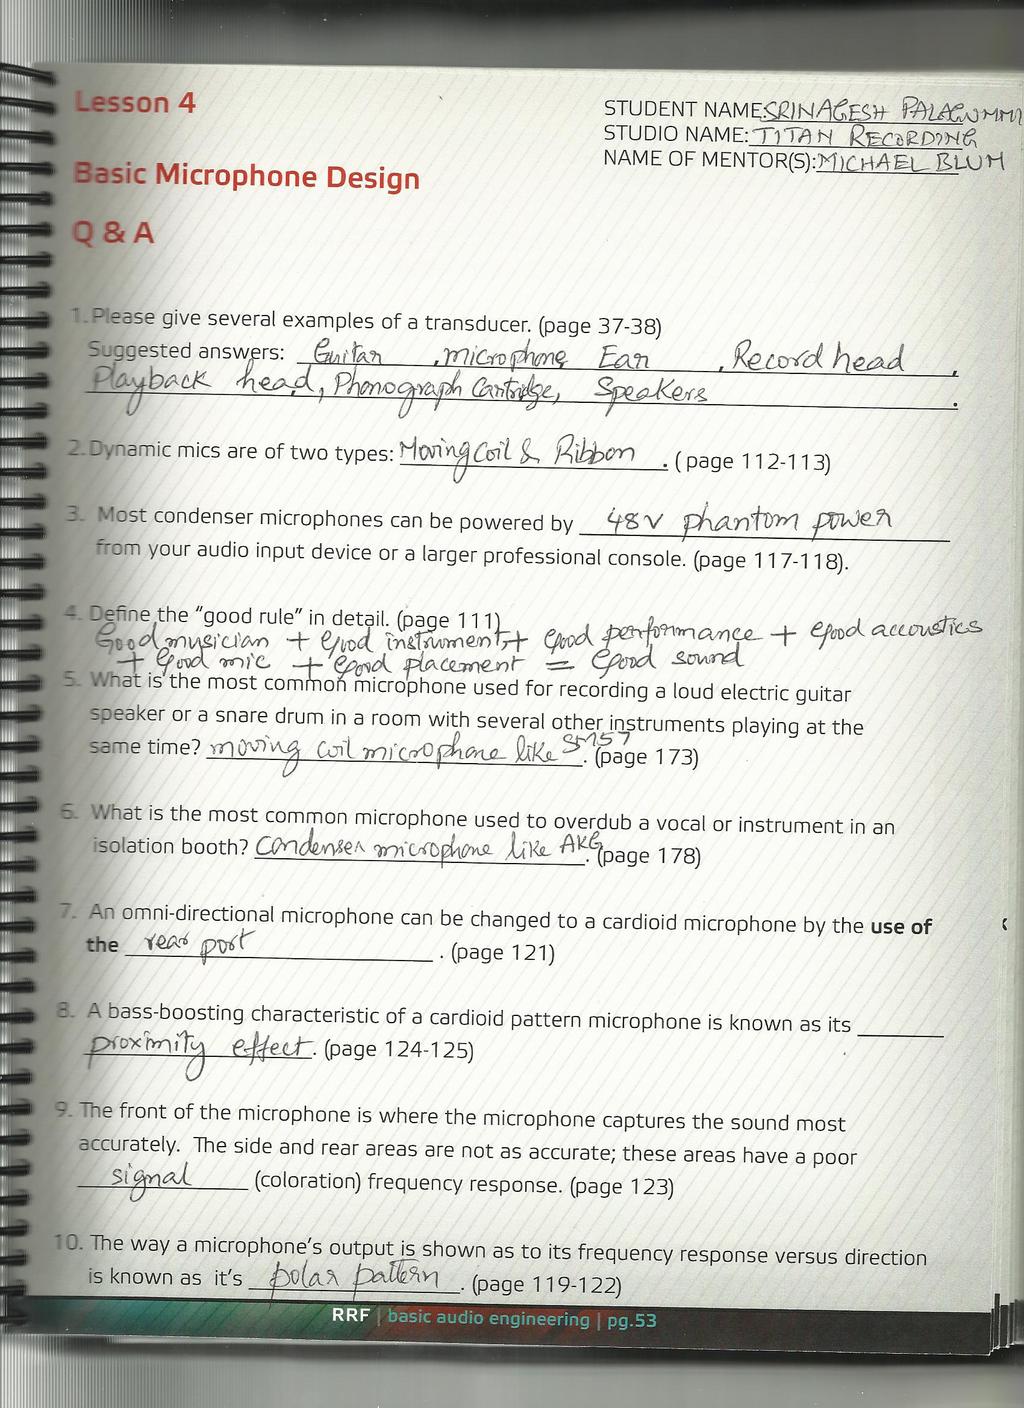 Lesson 4
STUDENT NAME: SRINAGESH PALAGUMMI
STUDIO NAME: TITAN RECORDING
NAME OF MENTOR(S): MICHAEL BLUM
Basic Microphone Design
Q & A
1. Please give several examples of a transducer. (page 37-38)
Suggested answers: Guitar, microphone, Ear, Record head,
Playback head, Phonograph Cartridge, Speakers.
2. Dynamic mics are of two types: Moving Coil & Ribbon. (page 112-113)
3. Most condenser microphones can be powered by 48V phantom power
from your audio input device or a larger professional console. (page 117-118).
4. Define the "good rule" in detail. (page 111)
Good musician + Good instrument + Good performance + Good accoustics
+ Good mic + Good placement = Good sound
5. What is the most common microphone used for recording a loud electric guitar
speaker or a snare drum in a room with several other instruments playing at the
same time? moving coil microphone like SM57. (page 173)
6. What is the most common microphone used to overdub a vocal or instrument in an
isolation booth? Condenser microphone like AKG. (page 178)
7. An omni-directional microphone can be changed to a cardioid microphone by the use of
the rear port. (page 121)
8. A bass-boosting characteristic of a cardioid pattern microphone is known as its
proximity effect. (page 124-125)
9. The front of the microphone is where the microphone captures the sound most
accurately. The side and rear areas are not as accurate; these areas have a poor
signal (coloration) frequency response. (page 123)
10. The way a microphone's output is shown as to its frequency response versus direction
is known as it's polar pattern. (page 119-122)
RRF | basic audio engineering | pg.53